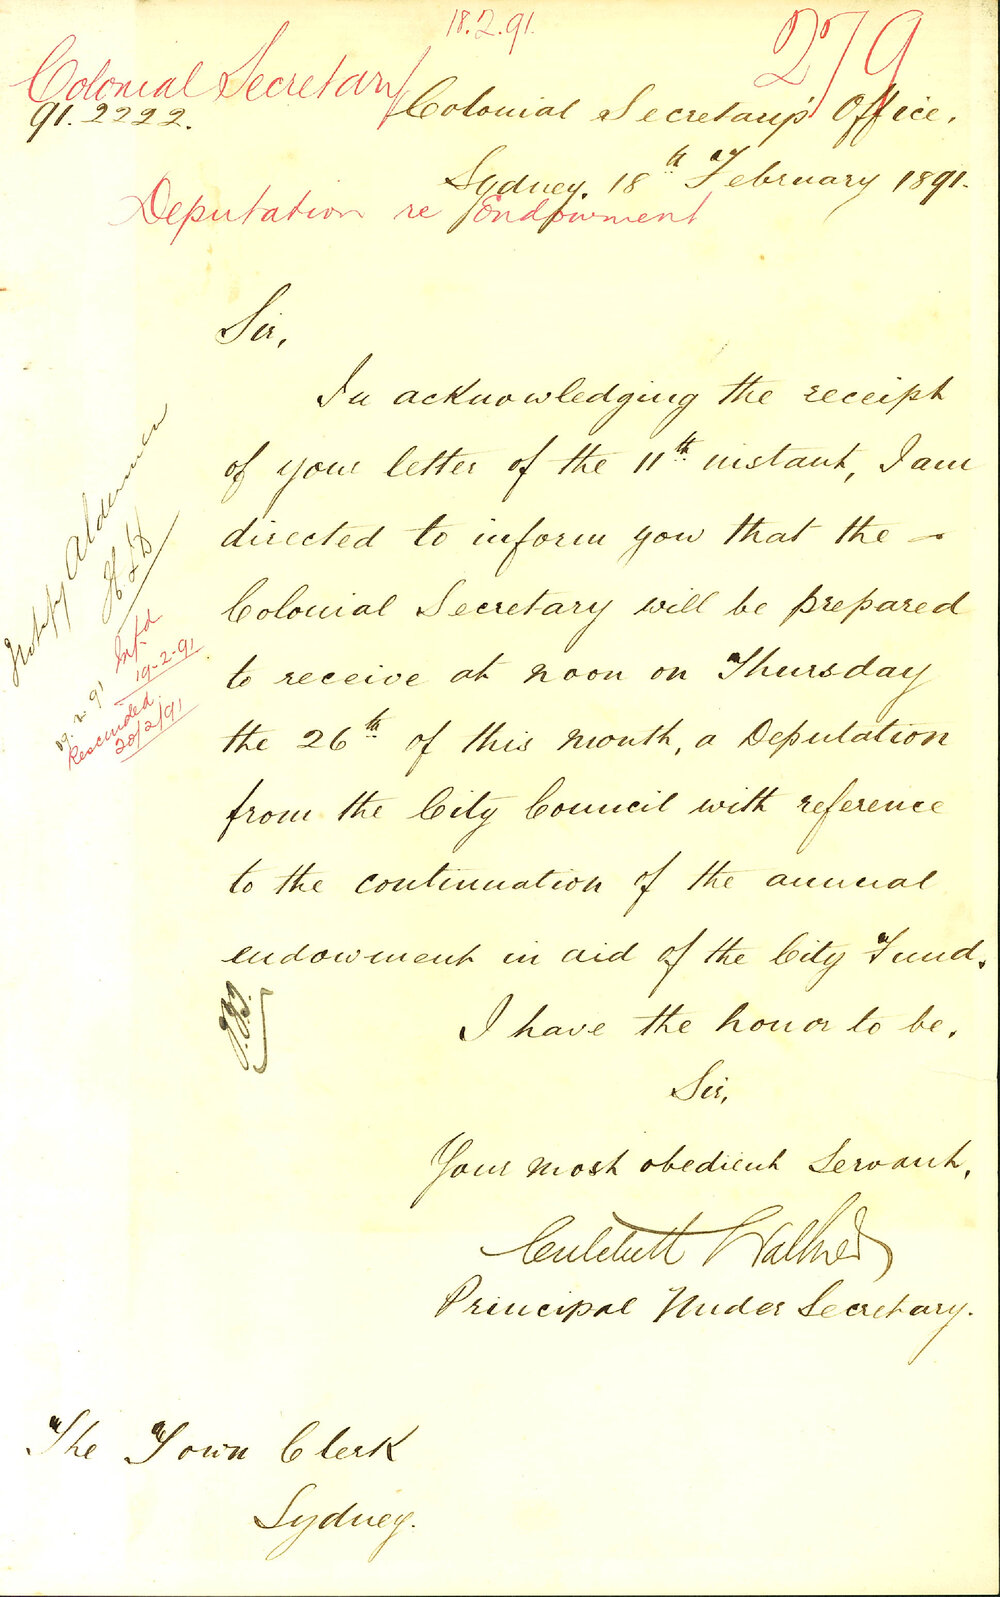 18.2.91.
279
Colonial Secretary
91.2222.
Colonial Secretary's Office,
Sydney, 18th February 1891.
Deputation re Endowment
Sir,
In acknowledging the receipt
of your letter of the 11th instant, I am
directed to inform you that the
Colonial Secretary will be prepared
to receive at noon on Thursday
the 26th of this month, a Deputation
from the City Council with reference
to the continuation of the annual
endowment in aid of the City Fund.
I have the honor to be,
Sir,
Your most obedient Servant,
Critchett Walker
Principal Under Secretary.
The Town Clerk
Sydney.
Notify Aldermen
19.2.91
Infd
19-2-91
Rescinded
20/2/91